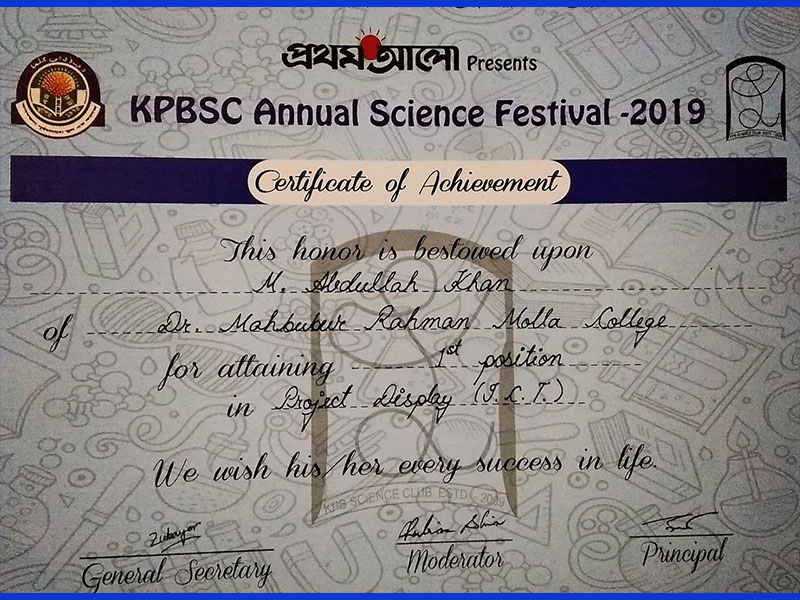 প্রথম আলো Presents
KPBSC Annual Science Festival -2019
Certificate of Achievement
This honor is bestowed upon
M. Abdullah Khan
of Dr. Mahbubur Rahman Molla College
for attaining 1st position
in Project Display (I.C.T.)
We wish his/her every success in life.
KPB SCIENCE CLUB ESTD - 2009
General Secretary
Moderator
Principal